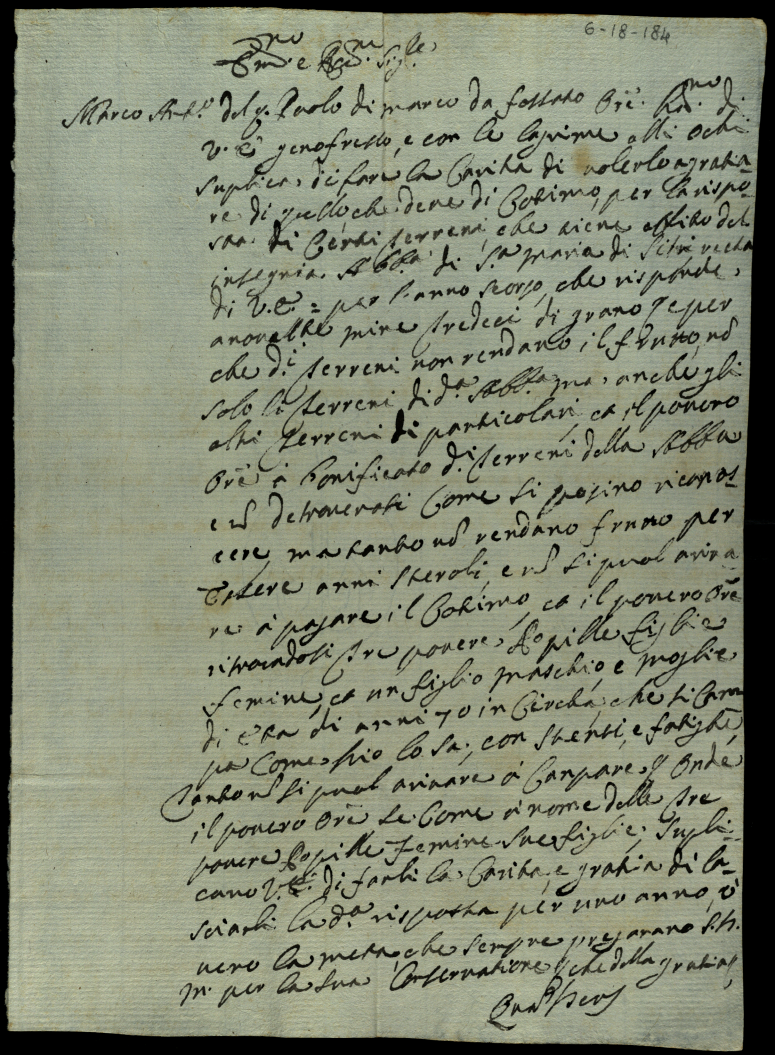 6-18-184
Em.mo e Rev.mo Sig.re
Marco Ant.o del q. Paolo di Marco da fossato Ore. hu.mo di
V. E. genofresso, e con le lagrime alli ochi
suplica, di fare la Carita di volerlo agratia-
re di quello che deve di Cotimo, per la rispo-
sta di Certi terreni, che tiene afitto del
insegnia Abb.a di S.ta Maria di Sitri recta
di V. E. = per l'anno scorso, che risponde,
mine tredeci di grano, e per
che d.i terreni non rendano il frutto, nō
solo li terreni di d.a Abb.a ma, anche gli
altri terreni di particolari, ca il povero
Ore à bonificato d.i terreni della Abba
e nō deteriorati Come si posino riconos-
cere, ma tanto nō rendano frutto per
essere anni steroli, e nō si puol ariva-
re à pagare il Cotimo, ca il povero Ore
ritrovandosi tre povere Popille figlie
femine, ca un figlio maschio, e moglie
di eta di anni 70 in Circha, che si Cam-
pa Come Dio lo sa, con stenti, e fatighe
tanto nō si puol arivare à Campare, Onde
il povero Ore se Come à nome delle tre
povere Popille femine sue figlie, supli-
cano V. E. di farli la Carita, e gratia di la-
sciarli la d.a risposta per uno anno, ò
vero la meta, che sempre pregarano S. D.
M. per la sua Conservatione, che della gratia
Quam Deus